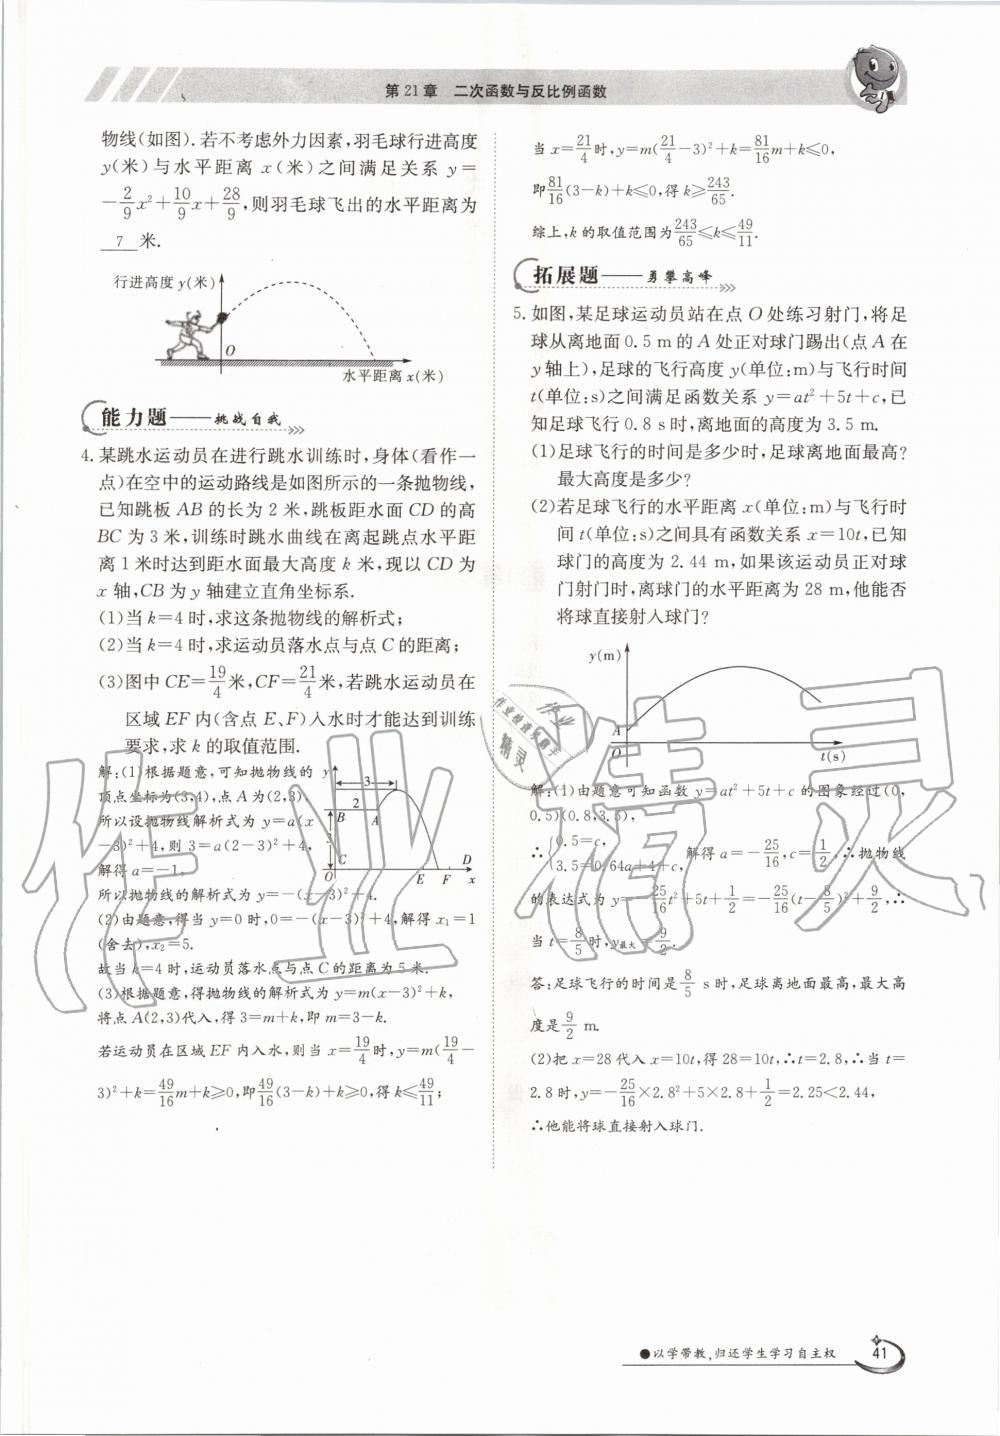 第21章 二次函数与反比例函数
物线(如图).若不考虑外力因素,羽毛球行进高度
y(米)与水平距离 x(米)之间满足关系 y=
-2/9x²+10/9x+28/9,则羽毛球飞出的水平距离为
7 米.
行进高度 y(米)
O
水平距离 x(米)
能力题——挑战自我
4.某跳水运动员在进行跳水训练时,身体(看作一
点)在空中的运动路线是如图所示的一条抛物线,
已知跳板 AB 的长为 2 米,跳板距水面 CD 的高
BC 为 3 米,训练时跳水曲线在离起跳点水平距
离 1 米时达到距水面最大高度 k 米,现以 CD 为
x 轴,CB 为 y 轴建立直角坐标系.
(1)当 k=4 时,求这条抛物线的解析式;
(2)当 k=4 时,求运动员落水点与点 C 的距离;
(3)图中 CE=19/4米,CF=21/4米,若跳水运动员在
区域 EF 内(含点 E、F)入水时才能达到训练
要求,求 k 的取值范围.
解:(1)根据题意,可知抛物线的
顶点坐标为(3,4),点 A 为(2,3).
所以设抛物线解析式为 y=a(x
-3)²+4,则 3=a(2-3)²+4,
解得 a=-1,
所以抛物线的解析式为 y=-(x-3)²+4.
y
3
2
B
A
3
C
D
O
E
F
x
(2)由题意,得当 y=0 时,0=-(x-3)²+4,解得 x₁=1
(舍去),x₂=5.
故当 k=4 时,运动员落水点与点 C 的距离为 5 米.
(3)根据题意,得抛物线的解析式为 y=m(x-3)²+k,
将点 A(2,3)代入,得 3=m+k,即 m=3-k.
若运动员在区域 EF 内入水,则当 x=19/4时,y=m(19/4-
3)²+k=49/16m+k≥0,即49/16(3-k)+k≥0,得 k≤49/11;
当 x=21/4时,y=m(21/4-3)²+k=81/16m+k≤0,
即81/16(3-k)+k≤0,得 k≥243/65.
综上,k 的取值范围为243/65≤k≤49/11.
拓展题——勇攀高峰
5.如图,某足球运动员站在点 O 处练习射门,将足
球从离地面 0.5 m 的 A 处正对球门踢出(点 A 在
y 轴上),足球的飞行高度 y(单位:m)与飞行时间
t(单位:s)之间满足函数关系 y=at²+5t+c,已
知足球飞行 0.8 s 时,离地面的高度为 3.5 m.
(1)足球飞行的时间是多少时,足球离地面最高?
最大高度是多少?
(2)若足球飞行的水平距离 x(单位:m)与飞行时
间 t(单位:s)之间具有函数关系 x=10t,已知
球门的高度为 2.44 m,如果该运动员正对球
门射门时,离球门的水平距离为 28 m,他能否
将球直接射入球门?
y(m)
A
O
t(s)
解:(1)由题意可知函数 y=at²+5t+c 的图象经过(0,
0.5)(0.8,3.5),
∴{0.5=c,
3.5=0.64a+4+c,
解得 a=-25/16,c=1/2,∴抛物线
的表达式为 y=-25/16t²+5t+1/2=-25/16(t-8/5)²+9/2,∴
当 t=8/5时,y最大=9/2.
答:足球飞行的时间是8/5 s时,足球离地面最高,最大高
度是9/2 m.
(2)把 x=28 代入 x=10t,得 28=10t,∴t=2.8,∴当 t=
2.8 时,y=-25/16×2.8²+5×2.8+1/2=2.25<2.44,
∴他能将球直接射入球门.
作业精灵
作业
作业检查做题手
精灵
●以学带教,归还学生学习自主权
41